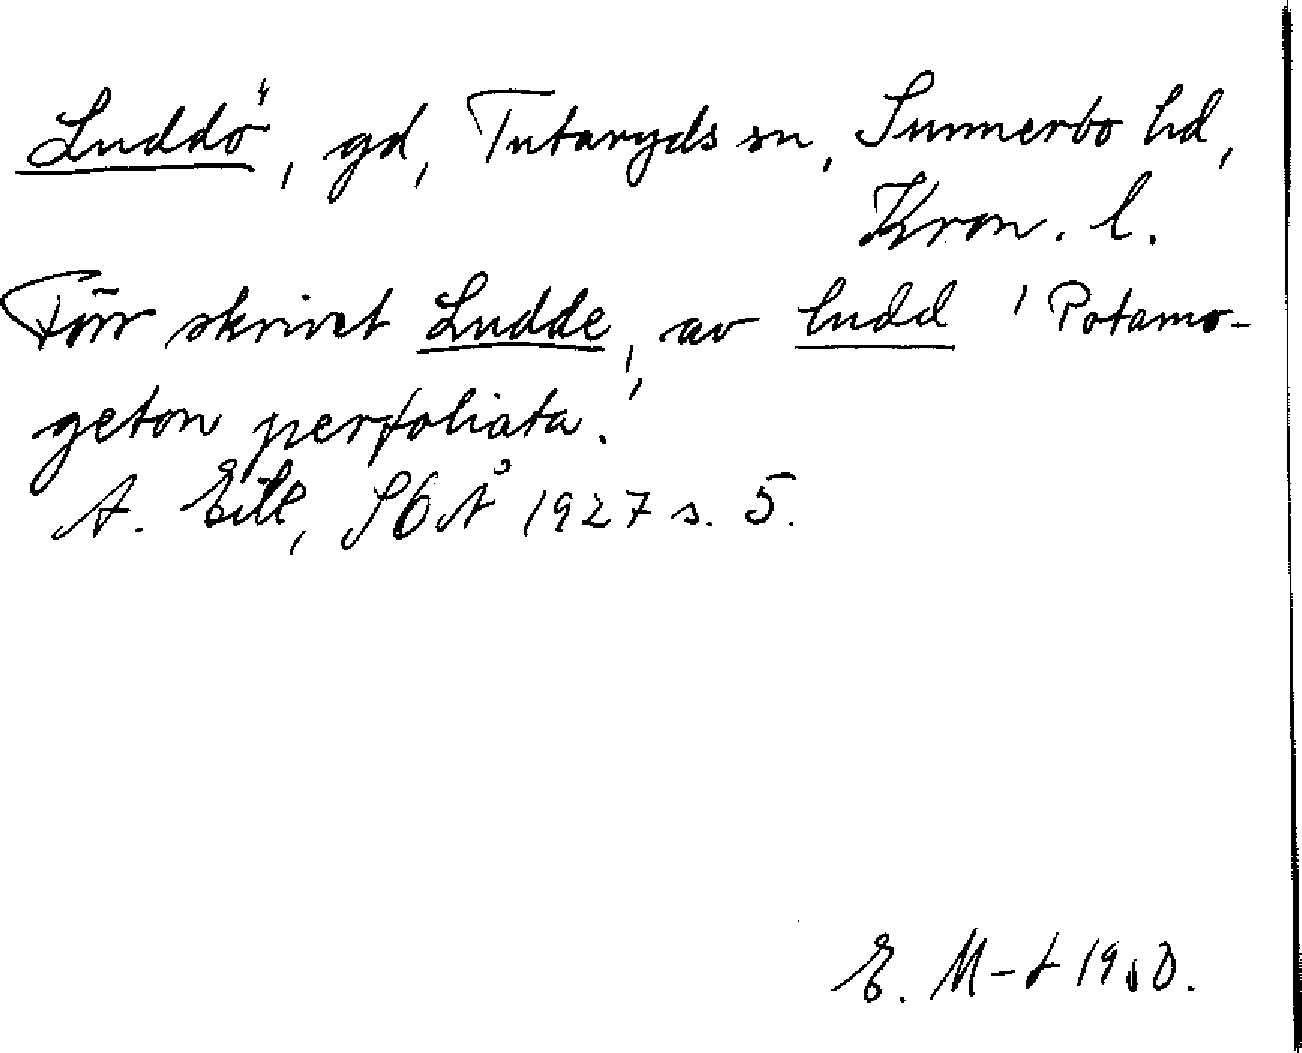 Luddö, gd, Tutaryds sn, Sunnerbo hd,
Kron. l.
Förr skrivet Ludde, av ludd 'Potamo-
geton perfoliata'.
A. 1927 s. 5.
E. M-t